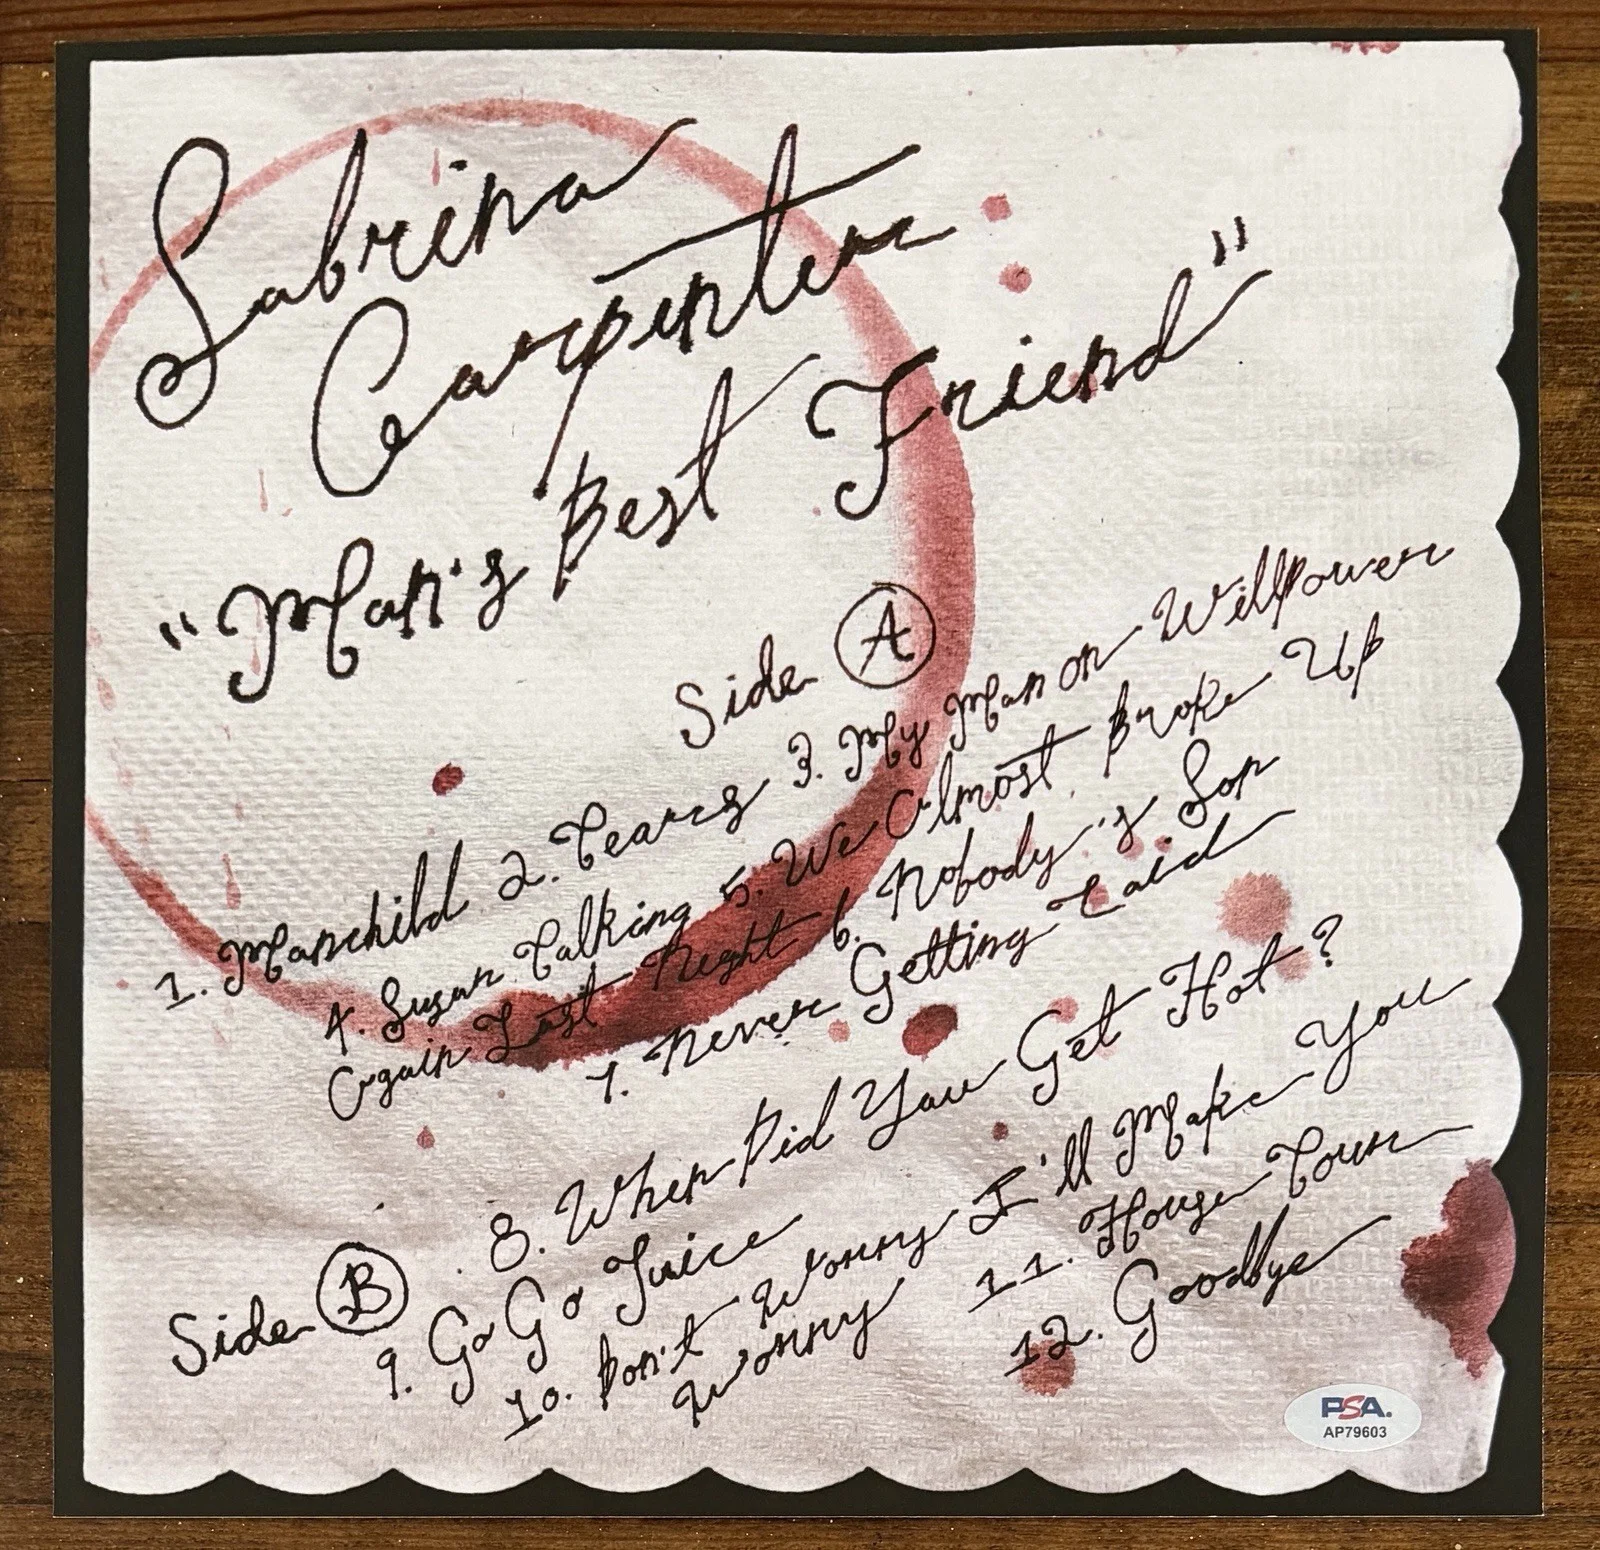 Sabrina
Carpenter
"Man's Best Friend"
Side A
1. Manchild 2. Tears 3. My Man on Willpower
4. Sugar Talking 5. We Almost Broke Up
Again Last Night 6. Nobody's Son
7. Never Getting Laid
Side B
8. When Did You Get Hot?
9. Go Go Juice
10. Don't Worry I'll Make You
Worry 11. House Tour
12. Goodbye
PSA.
AP79603